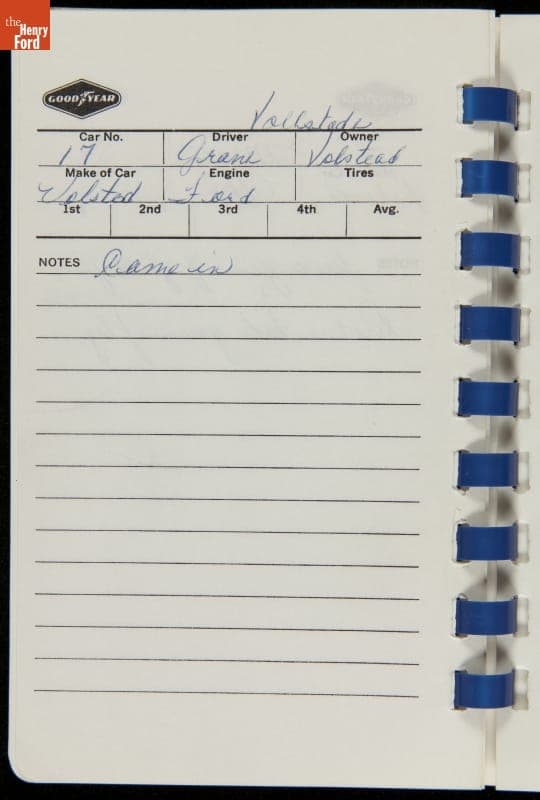 the
Henry
Ford
GOOD YEAR
Vollstedt
Car No. Driver Owner
17 Grant Volstead
Make of Car Engine Tires
Volsted Ford
1st 2nd 3rd 4th Avg.
NOTES Came in